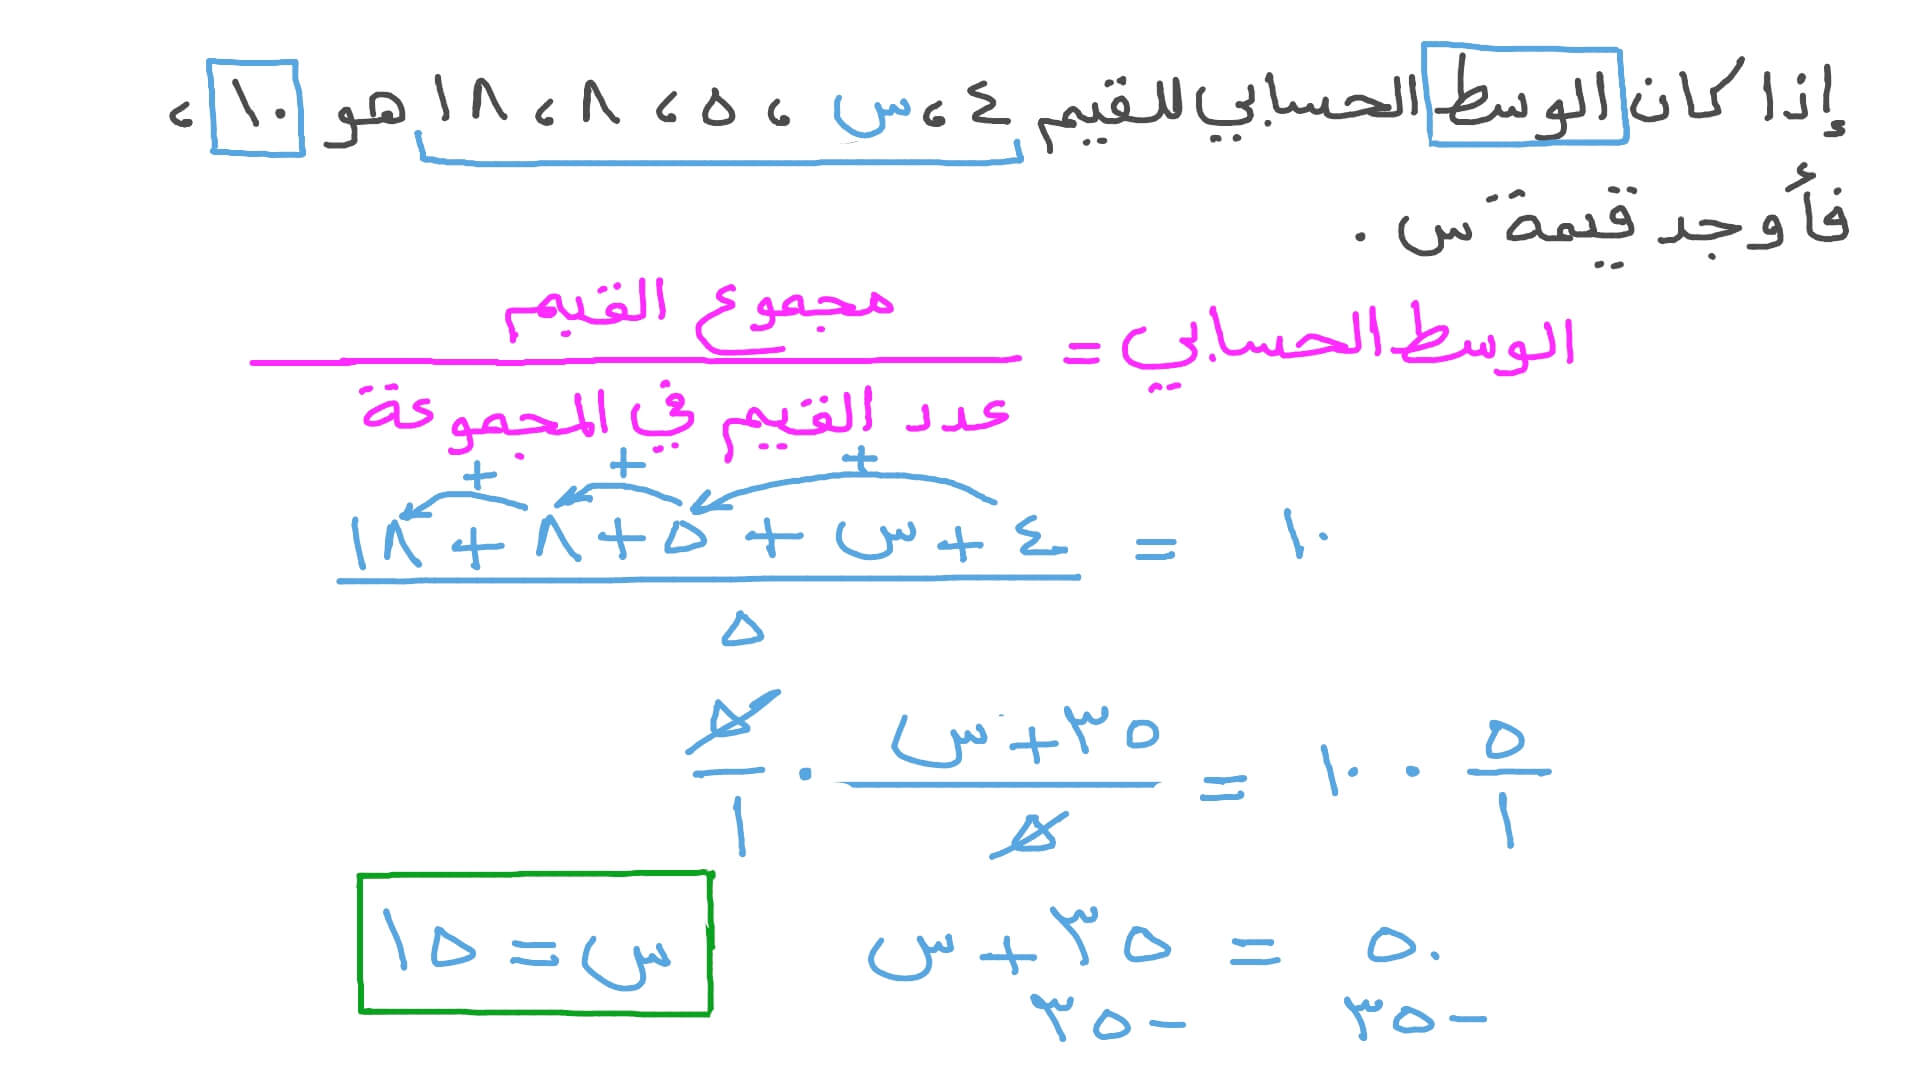 إذا كان الوسط الحسابي للقيم ٤، س، ٥، ٨، ١٨ هو ١٠،
فأوجد قيمة س.
الوسط الحسابي = مجموع القيم
عدد القيم في المجموعة
+ + +
١٠ = ٤ + س + ٥ + ٨ + ١٨
٥
٥/١ · ١٠ = (٣٥ + س)/٥ · ٥/١
٥٠ = ٣٥ + س
-٣٥ -٣٥
س = ١٥